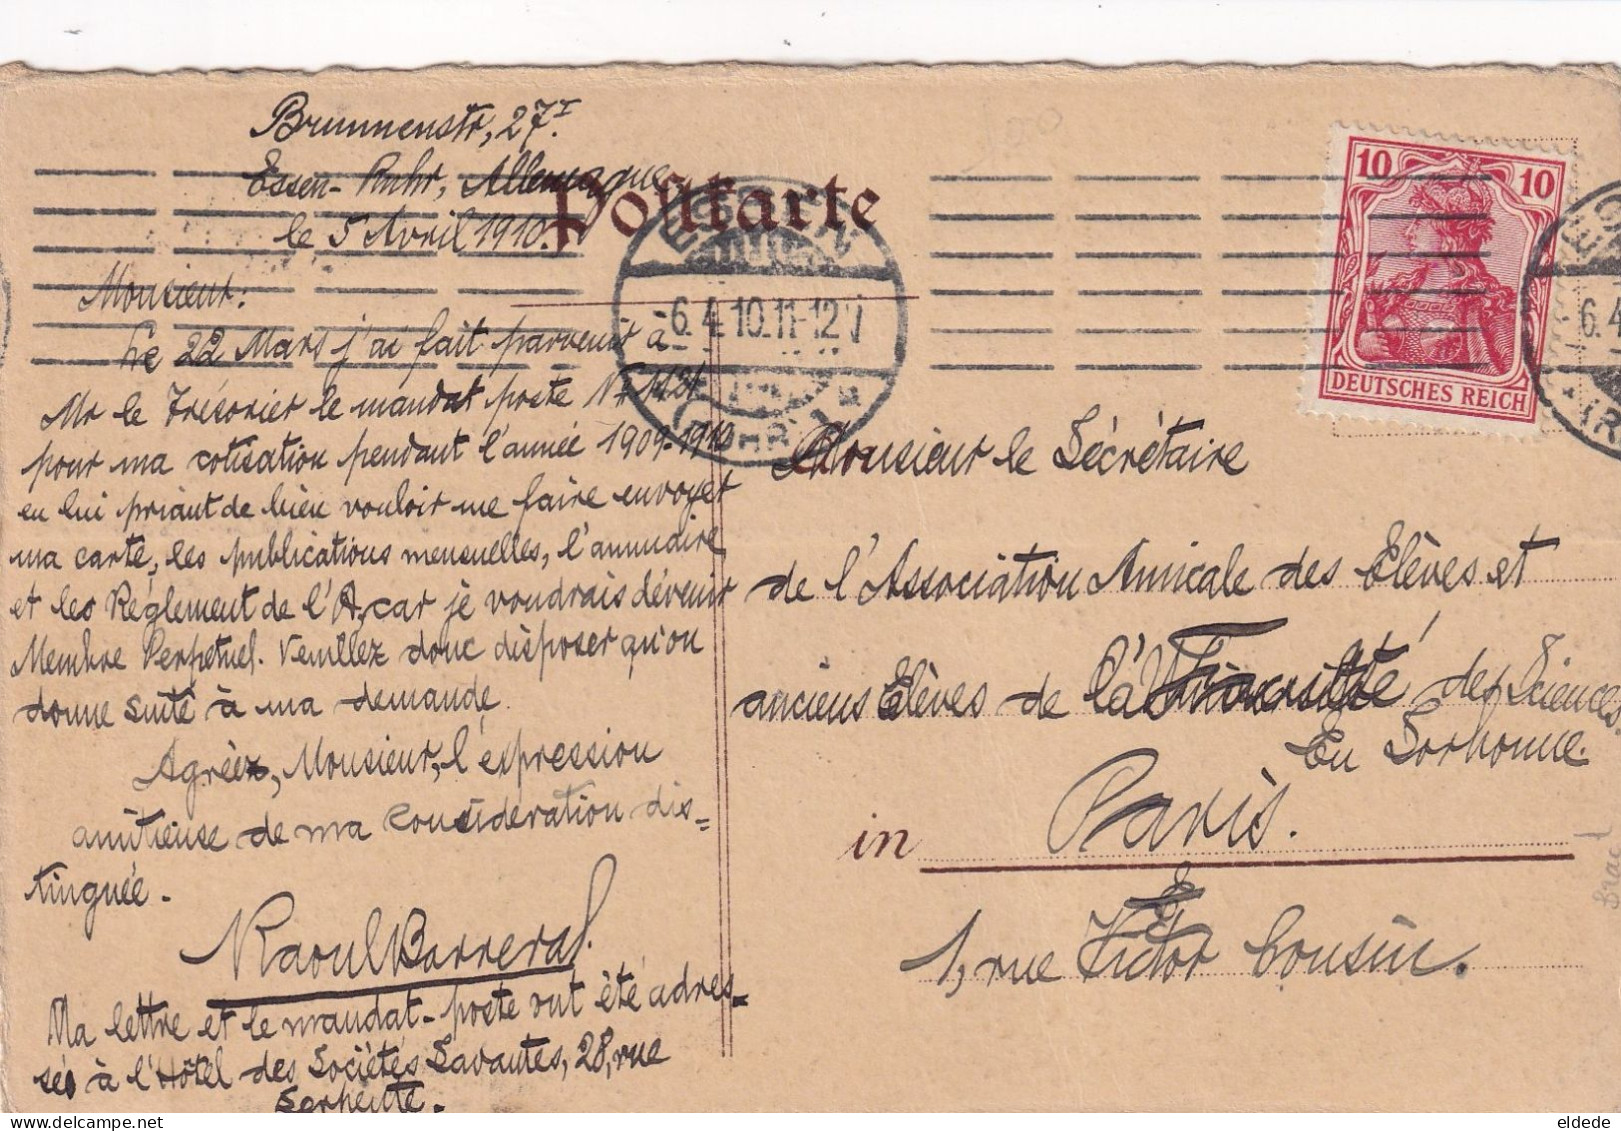 Brunnenstr, 27I.
Essen-Ruhr, Allemagne
le 5 Avril 1910.
Postkarte
Monsieur:
Le 22 Mars j'ai fait parvenir à
Mr le Trésorier le mandat poste Nr 1121
pour ma cotisation pendant l'année 1909-1910
en lui priant de bien vouloir me faire envoyer
ma carte, les publications mensuelles, l'annuaire
et les Réglement de l'A, car je voudrais dévenir
Membre Perpetuel. Veuillez donc disposer qu'on
donne suite à ma demande.
Agréez, Monsieur, l'expression
amitieuse de ma considération dis=
tinguée.
Raoul Barreral.
Ma lettre et le mandat-poste ont été adres=
sés à l'Hôtel des Sociétés Savantes, 28, rue
Serpente.
10 10
DEUTSCHES REICH
6.4.10.11-12V
(RUHR) 1
6.4
Monsieur le Sécrétaire
de l'Association Amicale des Elèves et
anciens Elèves de la des Sciences.
En Sorbonne.
in Paris.
1, rue Victor Cousin.
eldede